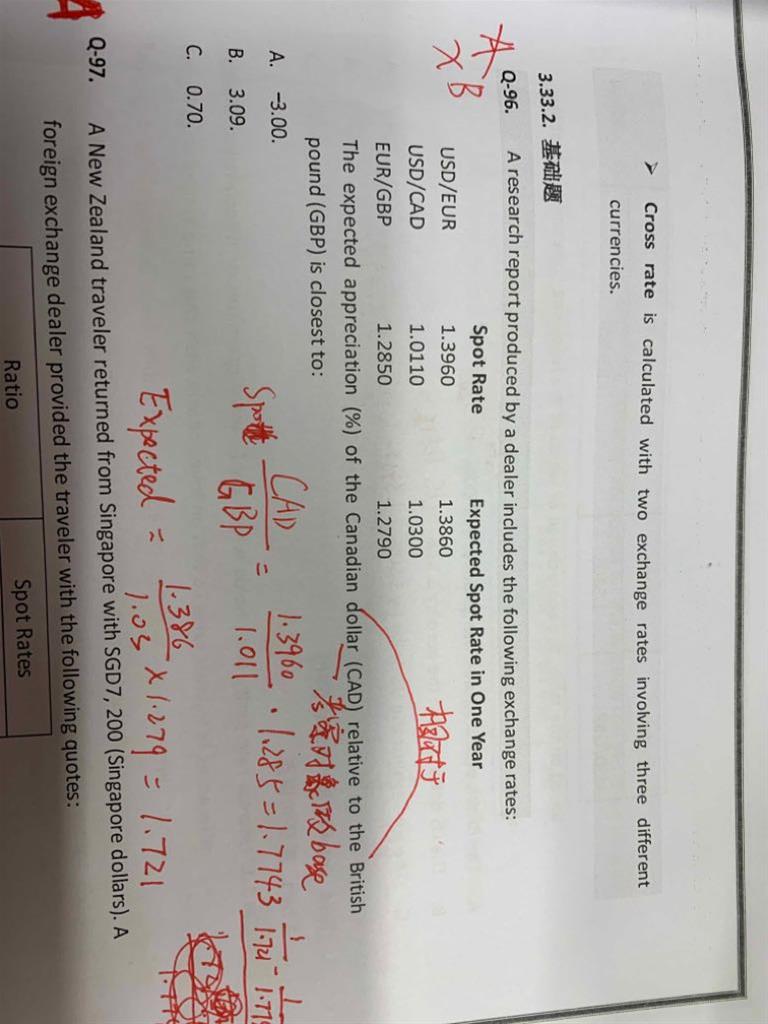 ➢ Cross rate is calculated with two exchange rates involving three different
currencies.
3.33.2. 基础题
Q-96. A research report produced by a dealer includes the following exchange rates:
A
X B
Spot Rate Expected Spot Rate in One Year
USD/EUR 1.3960 1.3860
USD/CAD 1.0110 1.0300
EUR/GBP 1.2850 1.2790
相对于
The expected appreciation (%) of the Canadian dollar (CAD) relative to the British
pound (GBP) is closest to:
base
A. –3.00.
B. 3.09.
C. 0.70.
CAD/GBP = 1.3960/1.011 · 1.285 = 1.7743
Expected = 1.386/1.03 × 1.279 = 1.721
A
Q-97. A New Zealand traveler returned from Singapore with SGD7, 200 (Singapore dollars). A
foreign exchange dealer provided the traveler with the following quotes:
Ratio Spot Rates